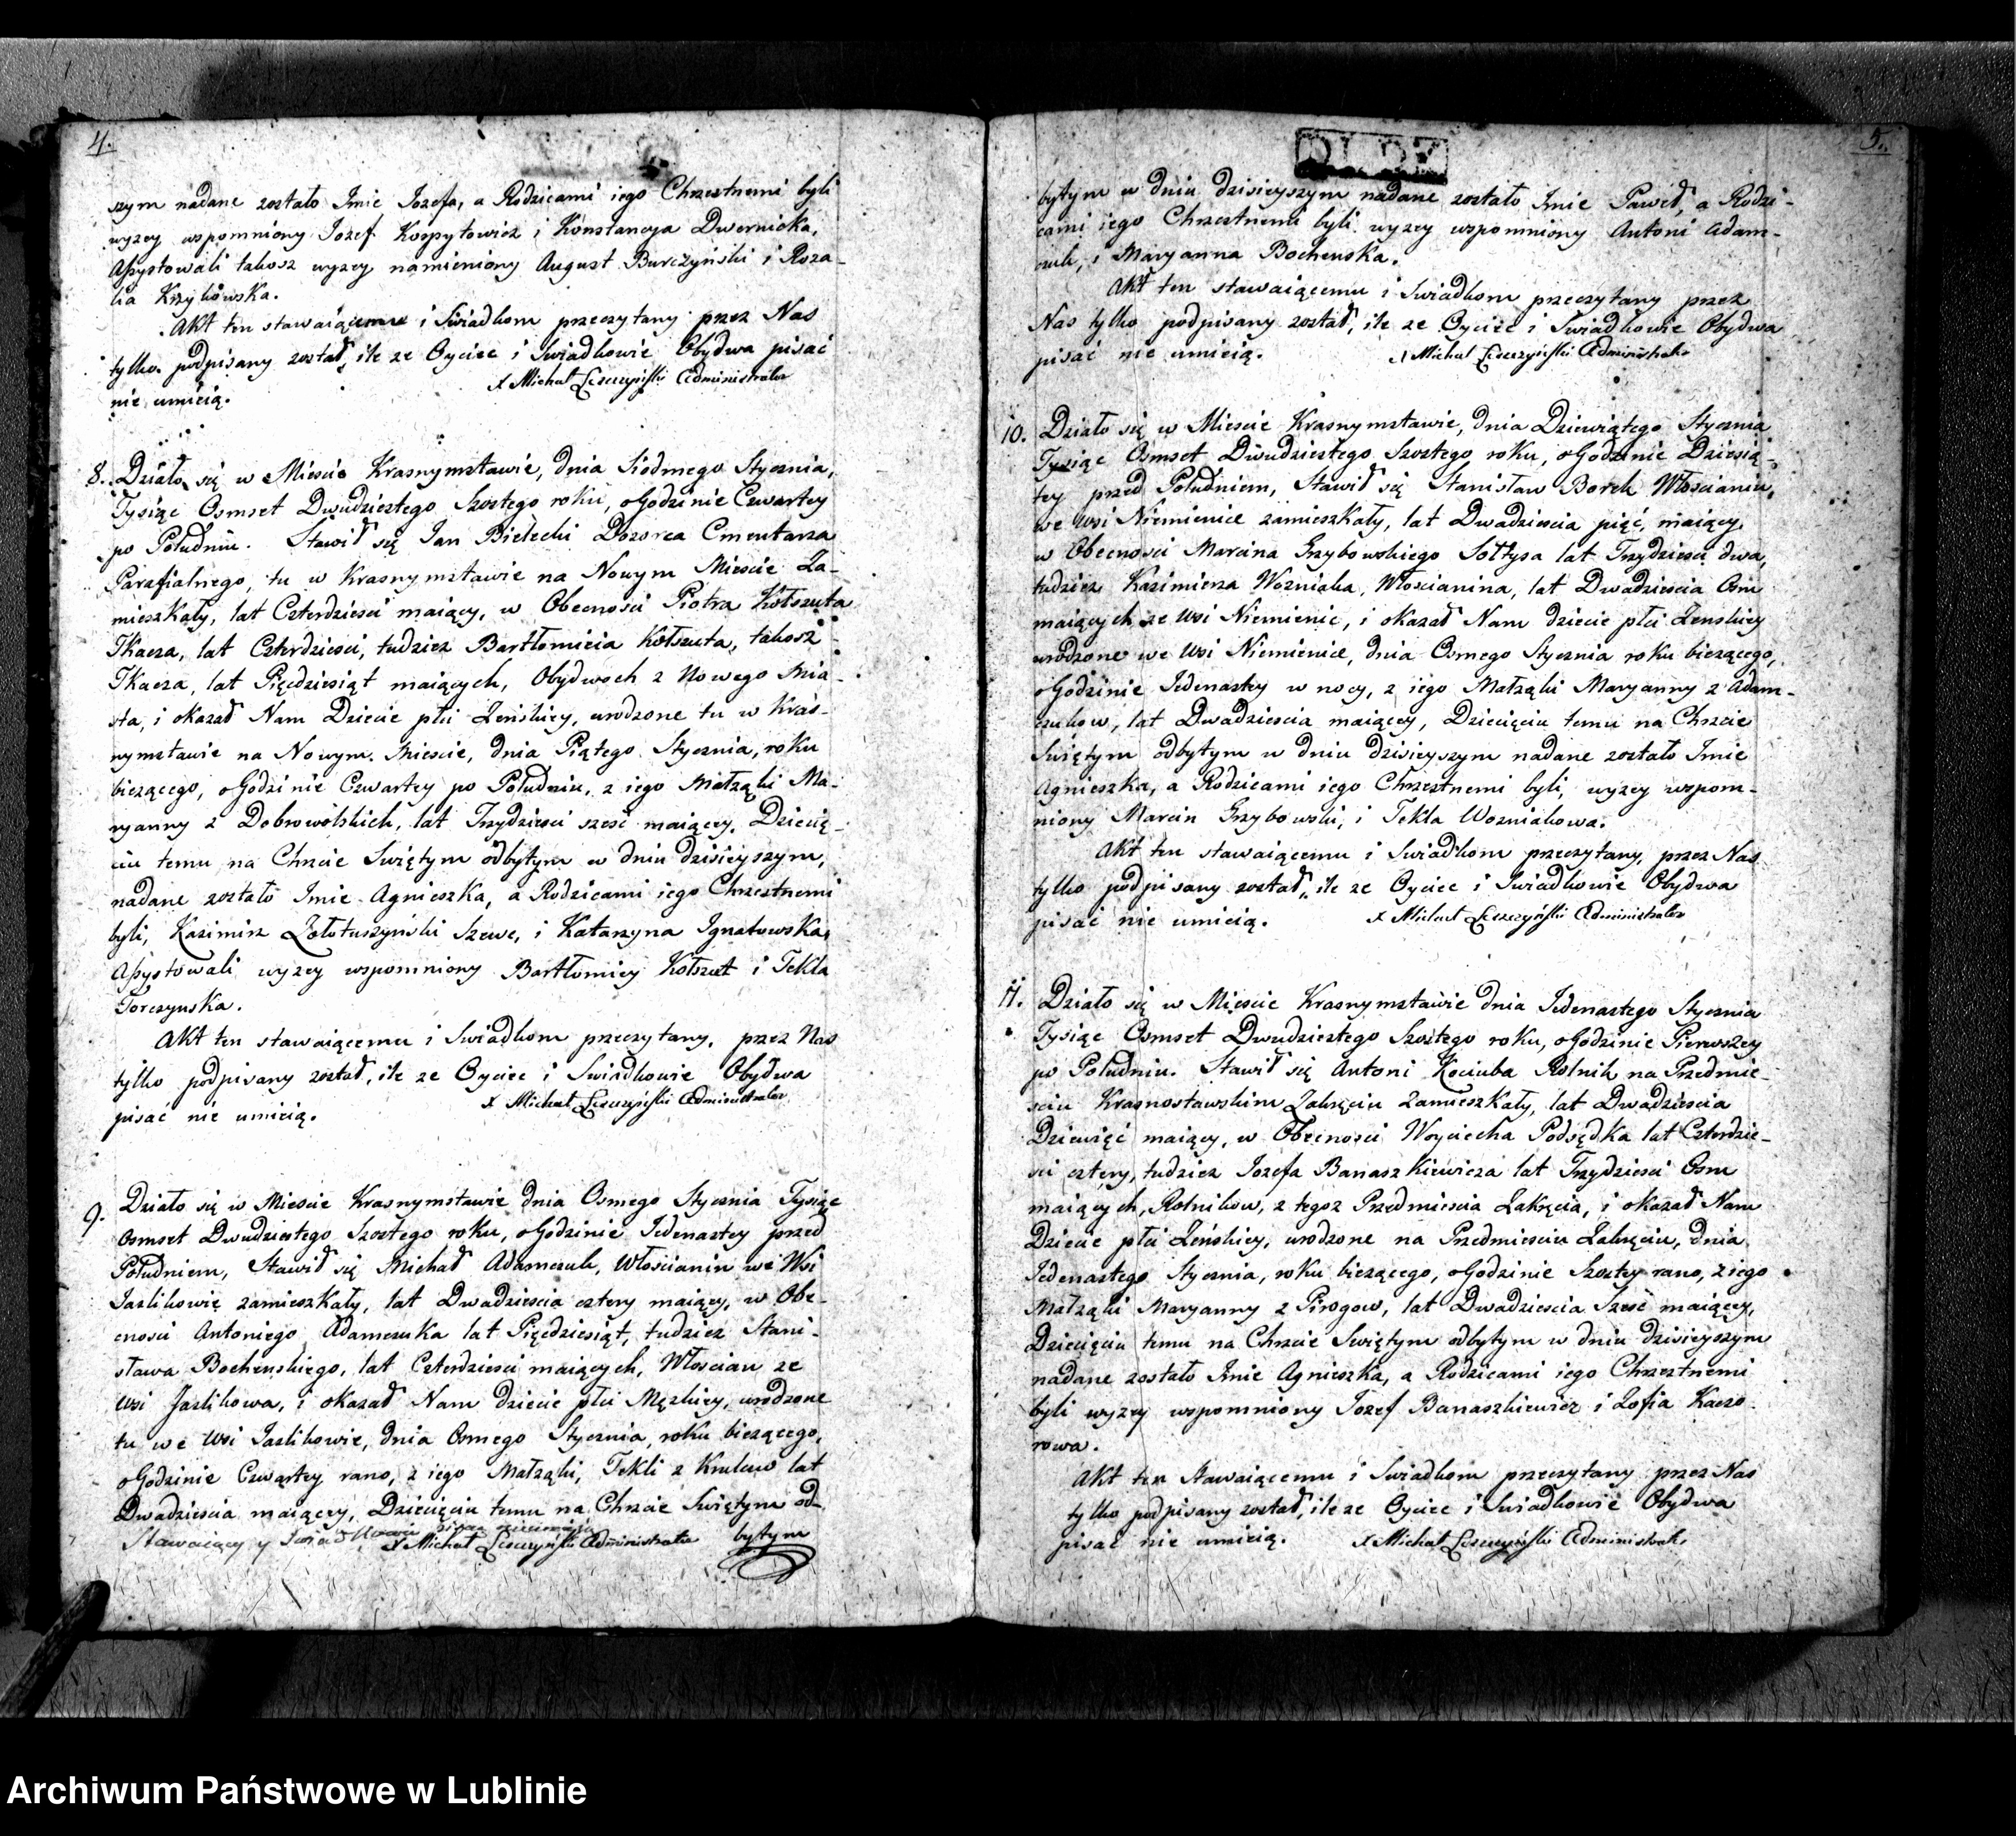 4.
szym nadane zostało Imie Jozefa, a Rodzicami iego Chrzestnemi byli
wyzey wspomniony Jozef Korpytowicz i Konstancya Dwernicka,
Assystowali takosz wyzey namieniony August Burczyński i Roza-
lia Krzykowska.
Akt ten stawaiącemu i Swiadkom przeczytany przez Nas
tylko podpisany został, ile ze Oyciec i Swiadkowie Obydwa pisać
nie umieią. X Michał Leszczyński Administrator
8. Działo się w Miescie Krasnymstawie, dnia Siodmego Stycznia,
Tysiąc Osmset Dwudziestego Szostego roku, o Godzinie Czwartey
po Południu. Stawił się Jan Bielecki Dozorca Cmentarza
Parafialnego, tu w Krasnymstawie na Nowym Miescie Za-
mieszkały, lat Czterdziesci maiący, w Obecnosci Piotra Kołszuta
Tkacza, lat Czterdziesci, tudziez Bartłomieia Kołszuta, takosz
Tkacza, lat Pięcdziesiąt maiących, Obydwoch z Nowego Mia-
sta, i okazał Nam Dziecie płci Zeńskiey, urodzone tu w Kras-
nymstawie na Nowym Miescie, dnia Piątego Stycznia, roku
bieżącego, o Godzinie Czwartey po Południu, z iego Małżąki Ma-
ryanny z Dobrowolskich, lat Trzydziesci szesć maiącey, Dziecię-
ciu temu na Chrzcie Swiętym odbytym w dniu dzisieyszym,
nadane zostało Imie Agnieszka, a Rodzicami iego Chrzestnemi
byli, Kazimirz Zołotuszyński Szewc, i Katarzyna Ignatowska,
Assystowali wyzey wspomniony Bartłomiey Kołszut i Tekla
Torczynska.
Akt ten stawaiącemu i Swiadkom przeczytany, przez Nas
tylko podpisany został, ile ze Oyciec i Swiadkowie Obydwa
pisać nie umieią. X Michał Leszczyński Administrator
9. Działo się w Miescie Krasnymstawie dnia Osmego Stycznia Tysiąc
Osmset Dwudziestego Szostego roku, o Godzinie Jedenastey przed
Południem, Stawił się Michał Adamczuk, Włościanin we Wsi
Jaslikowie zamieszkały, lat Dwadziescia cztery maiący, w Obe-
cnosci Antoniego Adamczuka lat Pięcdziesiąt, tudziez Stani-
sława Bochenskiego, lat Czterdziesci maiących, Włoscian ze
Wsi Jaslikowa, i okazał Nam dziecie płci Męzkiey, urodzone
tu we Wsi Jaslikowie, dnia Osmego Stycznia, roku bieżącego,
o Godzinie Czwartey rano, z iego Małżąki, Tekli z Krulow lat
Dwadziescia maiącey, Dziecięciu temu na Chrzcie Swiętym od-
bytym
Stawaiący y Swiadkowie pisac nieumieią X Michał Leszczyński Administrator
5.
bytym w dniu dzisieyszym nadane zostało Imie Paweł, a Rodzi-
cami iego Chrzestnemi byli wyzey wspomniony Antoni Adam-
czuk, i Maryanna Bochenska.
Akt ten stawaiącemu i Swiadkom przeczytany przez
Nas tylko podpisany został, ile ze Oyciec i Swiadkowie Obydwa
pisać nie umieią. X Michał Leszczyński Administrator
10. Działo się w Miescie Krasnymstawie, dnia Dziewiątego Stycznia
Tysiąc Osmset Dwudziestego Szostego roku, o Godzinie Dziesią-
tey przed Południem, Stawił się Stanisław Borek Włoscianin,
we Wsi Niemienice zamieszkały, lat Dwadziescia pięć, maiący,
w Obecnosci Marcina Grzybowskiego Sołtysa lat Trzydziesci dwa,
tudziez Kazimierza Wozniaka, Włoscianina, lat Dwadziescia Osm
maiących ze Wsi Niemienic, i okazał Nam dziecie płci Zenskiey
urodzone we Wsi Niemienice, dnia Osmego Stycznia roku bieżącego,
o Godzinie Jedenastey w nocy, z iego Małżąki Maryanny z Adam-
czukow, lat Dwadziescia maiącey, Dziecięciu temu na Chrzcie
Swiętym odbytym w dniu dzisieyszym nadane zostało Imie
Agnieszka, a Rodzicami iego Chrzestnemi byli, wyzey wspom-
niony Marcin Grzybowski, i Tekla Wozniakowa.
Akt ten stawaiącemu i Swiadkom przeczytany, przez Nas
tylko podpisany został, ile ze Oyciec i Swiadkowie Obydwa
pisać nie umieią. X Michał Leszczyński Administrator
11. Działo się w Miescie Krasnymstawie dnia Jedenastego Stycznia
Tysiąc Osmset Dwudziestego Szostego roku, o Godzinie Pierwszey
po Południu. Stawił się Antoni Kociuba Rolnik na Przedmie-
sciu Krasnostawskim Zakręciu Zamieszkały, lat Dwadziescia
Dziewięć maiący, w Obecnosci Woyciecha Podsędka lat Czterdzie-
sci cztery, tudziez Jozefa Banaszkiewicza lat Trzydziesci Osm
maiących, Rolnikow, z tegoz Przedmiescia Zakręcia, i okazał Nam
Dziecie płci Zeńskiey, urodzone na Przedmiesciu Zakręciu, dnia
Jedenastego Stycznia, roku bieżącego, o Godzinie Szostey rano, z iego
Małżąki Maryanny z Pirogow, lat Dwadziescia Szesć maiącey,
Dziecięciu temu na Chrzcie Swiętym odbytym w dniu dzisieyszym
nadane zostało Imie Agnieszka, a Rodzicami iego Chrzestnemi
byli wyzey wspomniony Jozef Banaszkiewicz i Zofia Kaczo-
rowa.
Akt ten Stawaiącemu i Swiadkom przeczytany przez Nas
tylko podpisany został, ile ze Oyciec i Swiadkowie Obydwa
pisać nie umieią. X Michał Leszczyński Administrator
Archiwum Państwowe w Lublinie